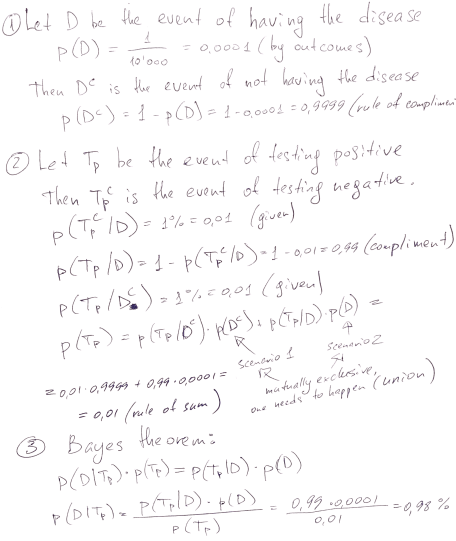 ① Let D be the event of having the disease
p(D) = 1/10'000 = 0,0001 (by outcomes)
Then Dᶜ is the event of not having the disease
p(Dᶜ) = 1 - p(D) = 1 - 0,0001 = 0,9999 (rule of complimen
② Let Tp be the event of testing positive
Then Tpᶜ is the event of testing negative.
p(Tpᶜ/D) = 1% = 0,01 (given)
p(Tp/D) = 1 - p(Tpᶜ/D) = 1 - 0,01 = 0,99 (compliment)
p(Tp/Dᶜ) = 1% = 0,01 (given)
p(Tp) = p(Tp/Dᶜ)·p(Dᶜ) + p(Tp/D)·p(D) =
scenario 1 scenario 2
= 0,01·0,9999 + 0,99·0,0001 =
mutually exclusive,
one needs to happen (union)
= 0,01 (rule of sum)
③ Bayes theorem:
p(D|Tp)·p(Tp) = p(Tp|D)·p(D)
p(D|Tp) = p(Tp|D)·p(D)/p(Tp) = 0,99·0,0001/0,01 = 0,98 %